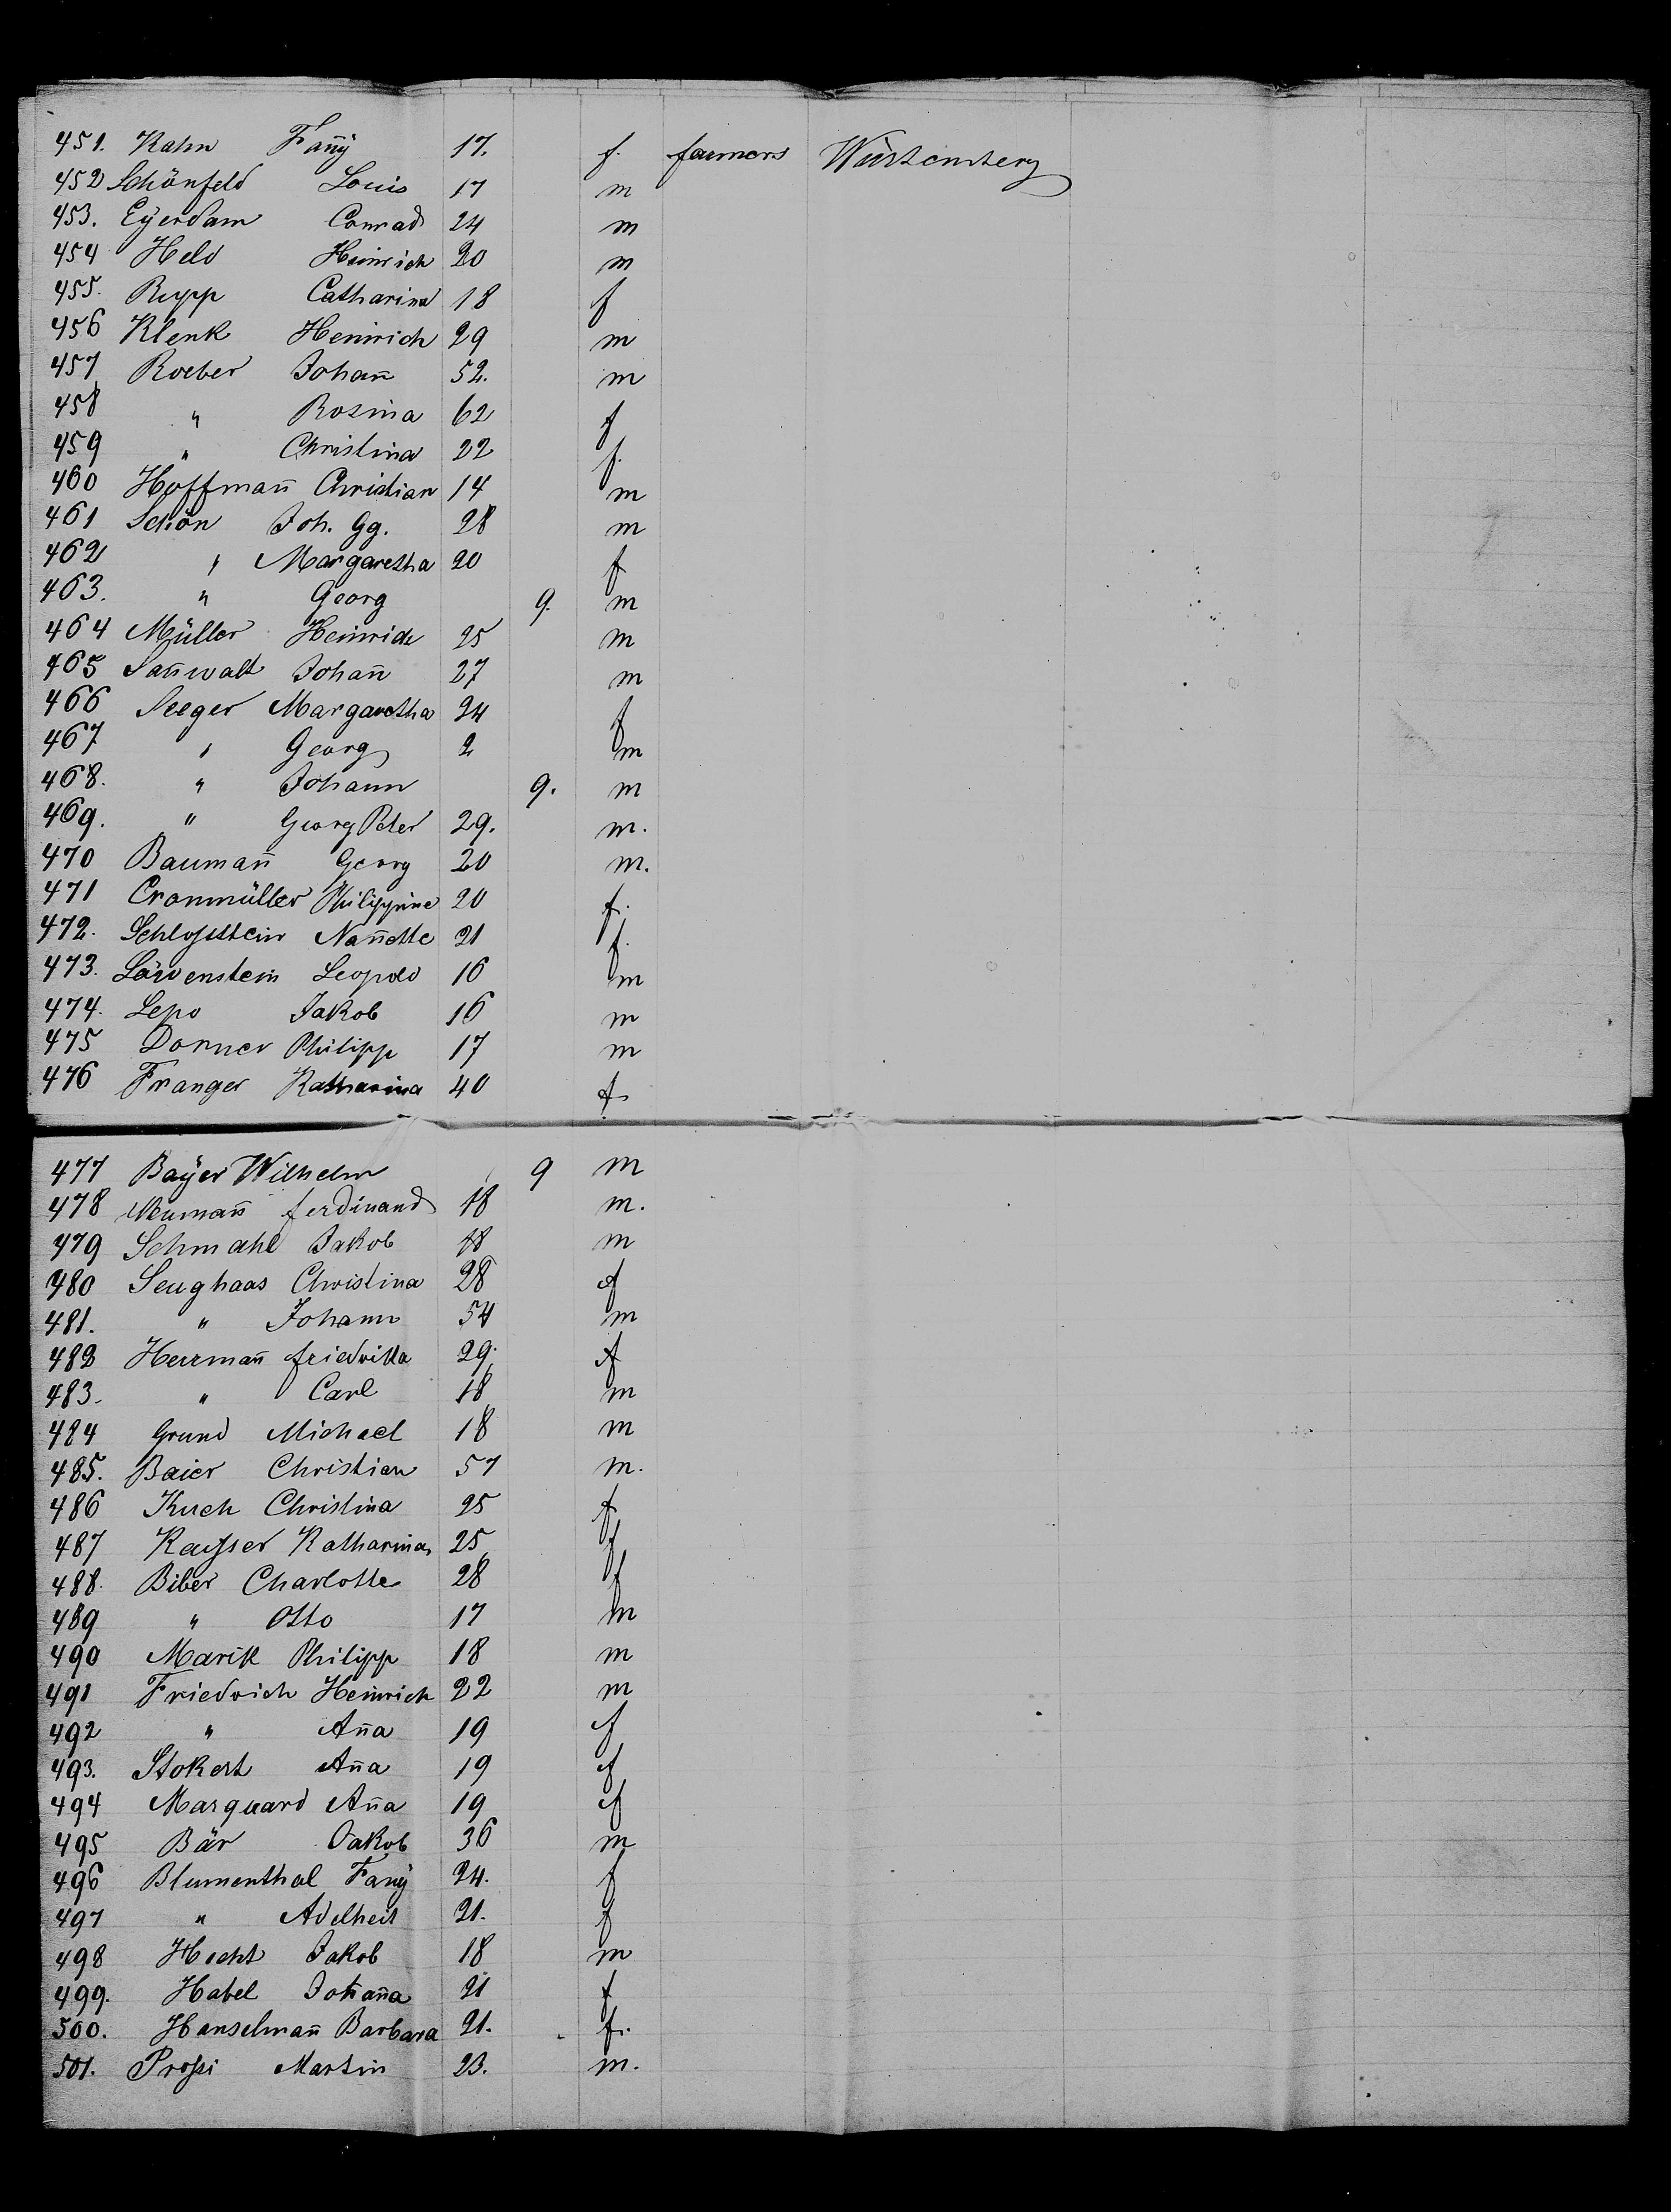 451. Kahn Fañy 17. f. farmers Würtemberg
452 Schönfeld Louis 17 m
453. Eyerdam Conrad 24 m
454 Held Heinrich 20 m
455. Rupp Catharina 18 f
456 Klenk Heinrich 29 m
457 Roeber Johañ 52. m
458 " Rosina 62 f
459 " Christina 22 f.
460 Hoffmañ Christian 14 m
461 Schön Joh. Gg. 28 m
462 " Margaretha 20 f
463. " Georg 9. m
464 Müller Heinrich 25 m
465 Sañwalt Johañ 27 m
466 Seeger Margaretha 24 f
467 " Georg 2 m
468. " Johann 9. m
469. " Georg Peter 29. m.
470 Baumañ Georg 20 m.
471 Cronmüller Philippine 20 f.
472. Schloſsstein Nañette 21 f.
473. Löwenstein Leopold 16 m
474. Lepo Jakob 16 m
475 Dorner Philipp 17 m
476 Franger Katharina 40 f.
477 Bayer Wilhelm 9 m
478 Neumañ ferdinand 18 m.
479 Schmahl Jakob 18 m
480 Seughaas Christina 28 f
481. " Johann 54 m
482 Herrmañ friedrika 29. f
483. " Carl 18 m
484 Grund Michael 18 m
485. Baier Christian 57 m.
486 Kuch Christina 25 f
487 Kayser Katharina 25 f
488. Biber Charlotte 28 f
489 " Otto 17 m
490 Marik Philipp 18 m
491 Friedrich Heinrich 22 m
492 " Aña 19 f
493. Stokert Aña 19 f
494 Marquard Aña 19 f
495 Bär Jakob 36 m
496 Blumenthal Fañy 24. f
497 " Adelheit 21. f
498 Hecht Jakob 18 m
499. Habel Johaña 21 f
500. Hanselmañ Barbara 21. f.
501. Proſsi Martin 23. m.